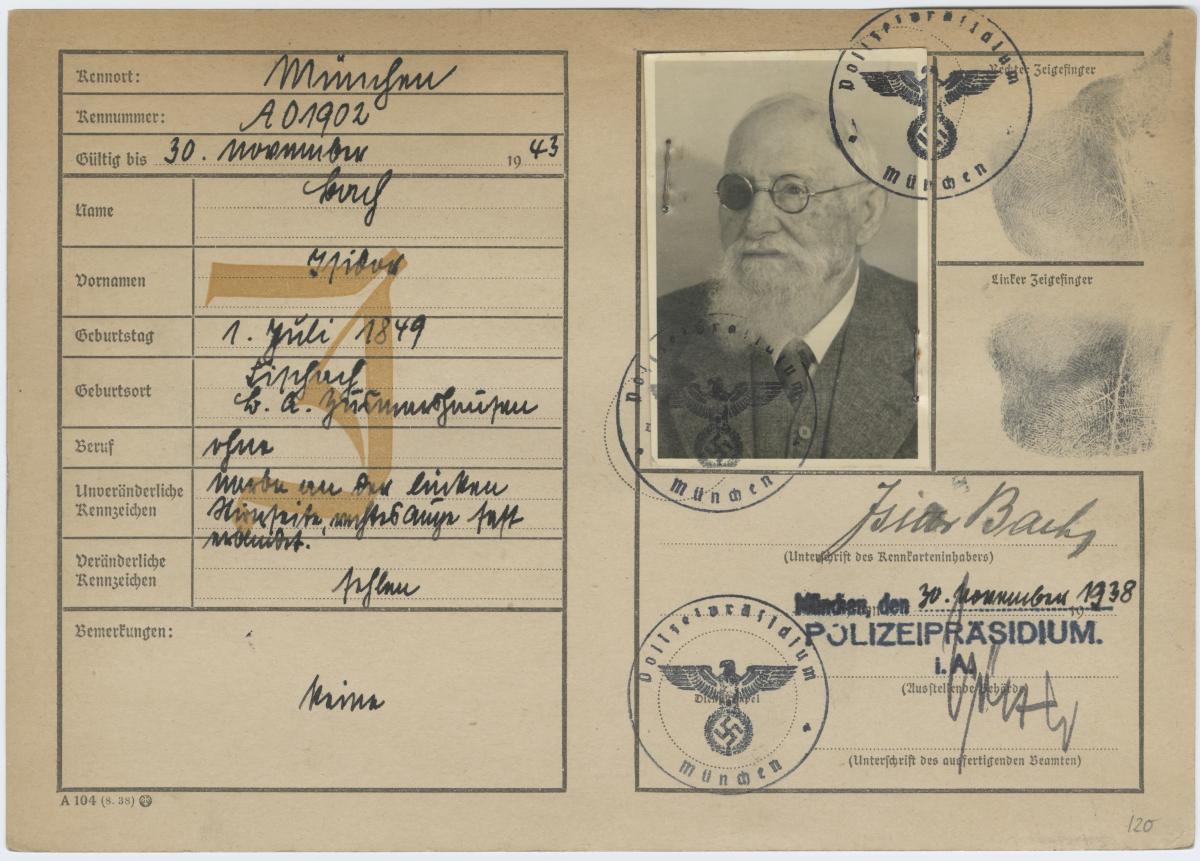 Kennort: München
Kennummer: A01902
Gültig bis 30. November 1943
Name Bach
Vornamen Isidor
Geburtstag 1. Juli 1849
Geburtsort Fischach
B. A. Zusmarshausen
Beruf ohne
Unveränderliche Kennzeichen Narbe an der linken
Stirnseite, rechtes Auge fast
erblindet.
Veränderliche Kennzeichen fehlen
Bemerkungen:
keine
A 104 (8. 38)
J
Polizeipräsidium
München
Rechter Zeigefinger
Linker Zeigefinger
Polizeipräsidium
München
Isidor Bach
(Unterschrift des Kennkarteninhabers)
München, den 30. November 1938
POLIZEIPRÄSIDIUM.
i.A.
(Ausstellende Behörde)
Polizeipräsidium
Dienststempel
München
(Unterschrift des ausfertigenden Beamten)
120